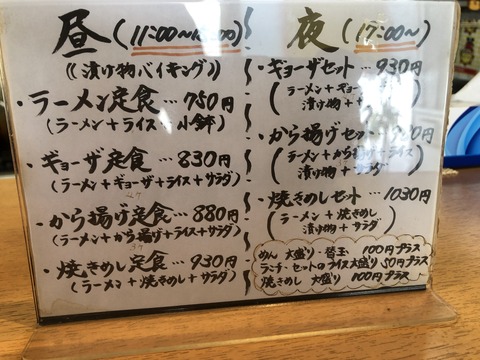 昼 (11:00～
((漬け物バイキング))
・ラーメン定食…750円
(ラーメン+ライス+小鉢)
・ギョーザ定食…830円
(ラーメン+ギョーザ+ライス+サラダ)
・から揚げ定食…880円
(ラーメン+から揚げ+ライス+サラダ)
・焼きめし定食…930円
(ラーメン+焼きめし+サラダ)
夜 (17:00～)
・ギョーザセット…930円
(ラーメン+ギョー
漬け物+
・から揚げセット
(ラーメン+から揚げ+
漬け物+
・焼きめしセット…1030円
(ラーメン+焼きめし
漬け物+サラダ)
めん 大盛り・替玉 100円プラス
ランチ・セットのライス大盛り 50円プラス
焼きめし 大盛り 100円プラス